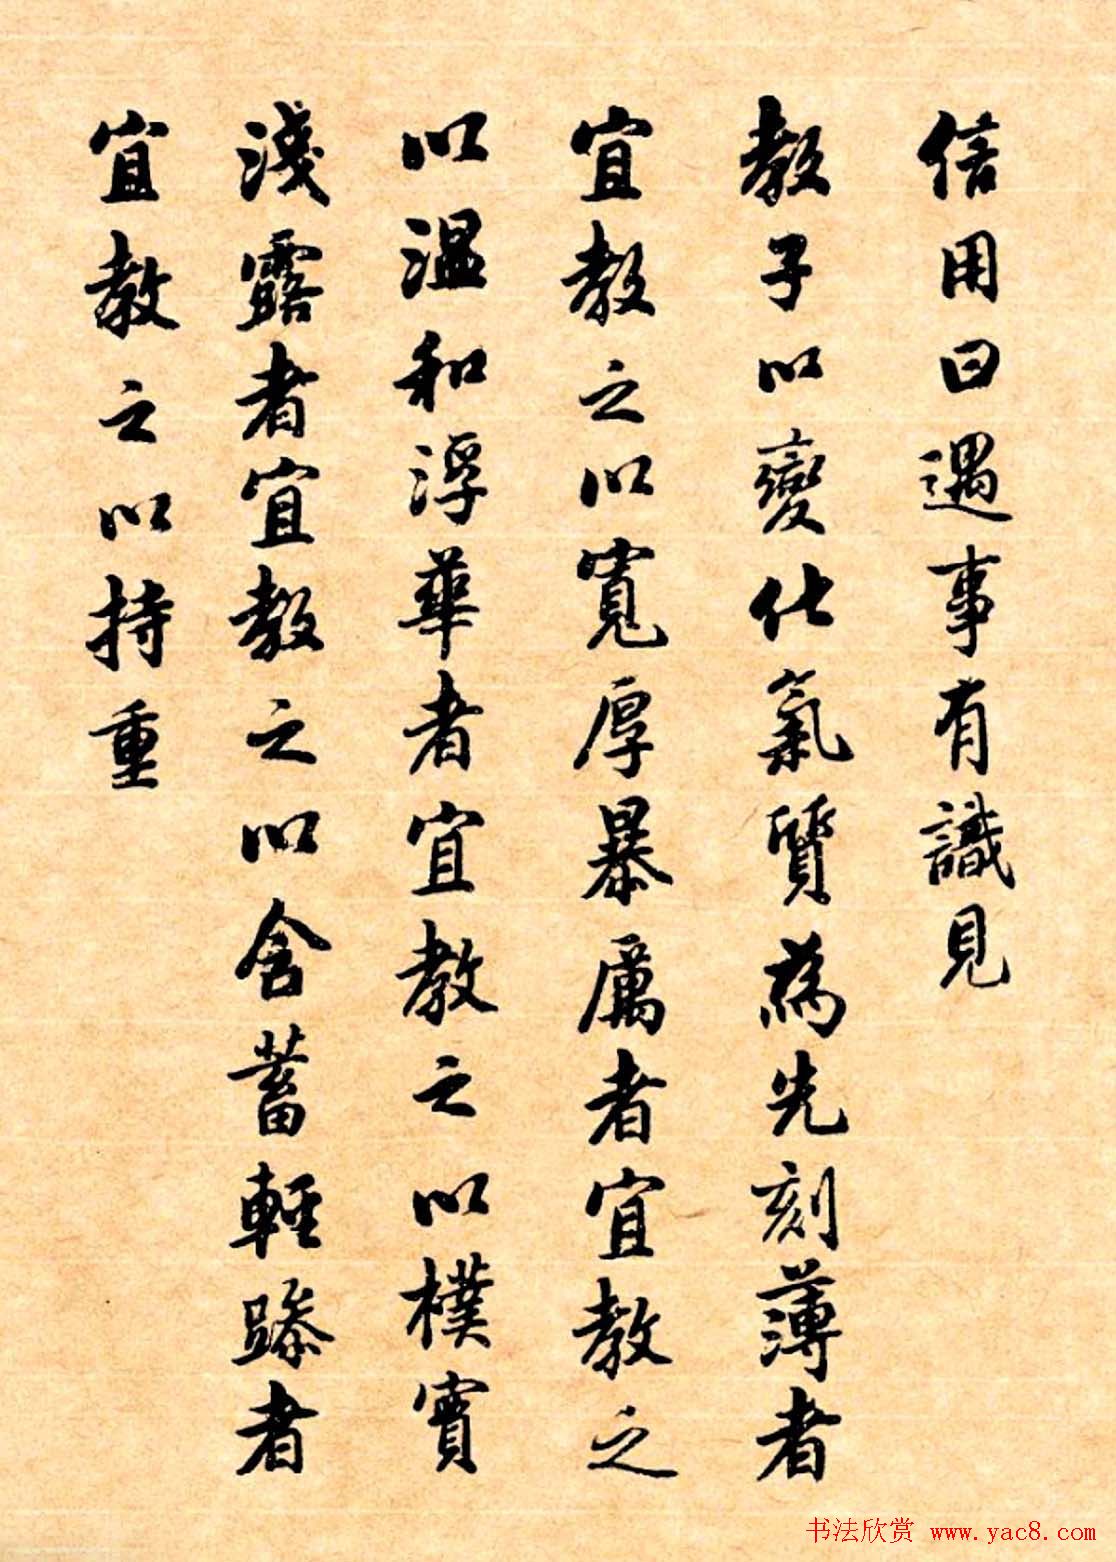 信用曰遇事有識見
教子以變化氣質為先刻薄者
宜教之以寬厚暴厲者宜教之
以溫和浮華者宜教之以樸實
淺露者宜教之以含蓄輕躁者
宜教之以持重
书法欣赏 www.yac8.com